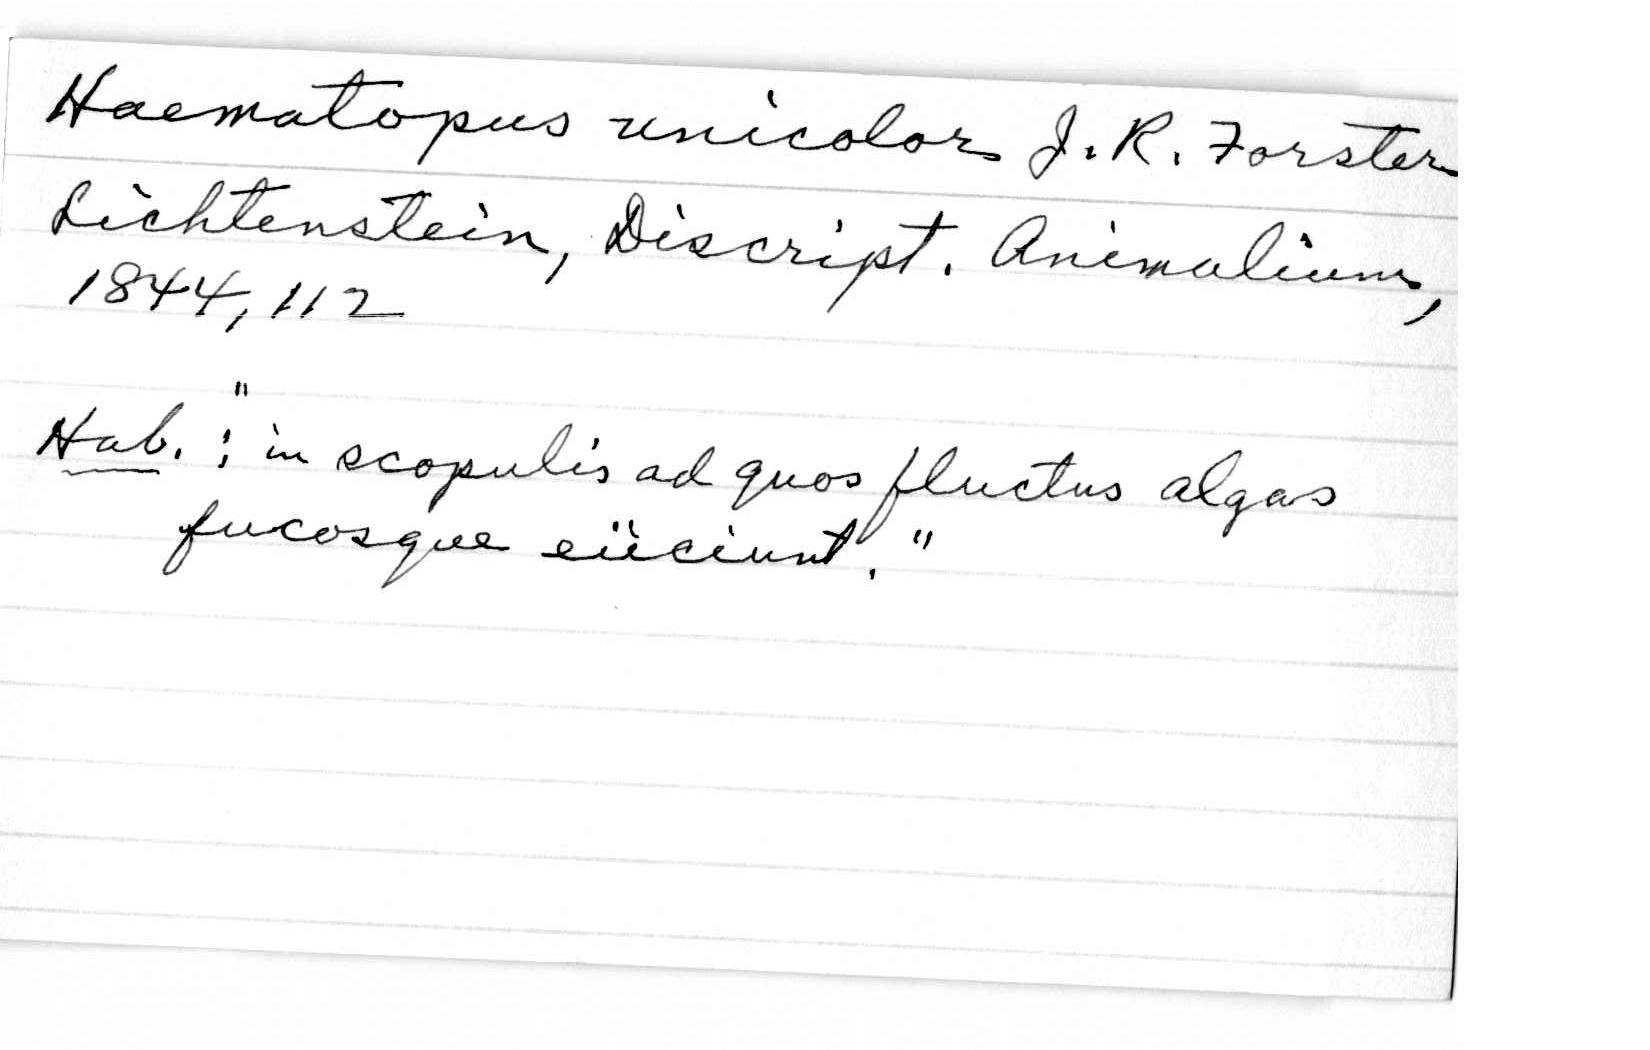 Haematopus unicolor J. R. Forster
Lichtenstein, Discript. Animalium,
1844, 112
Hab. : "in scopulis ad quos fluctus algas
fucosque eiiciunt."